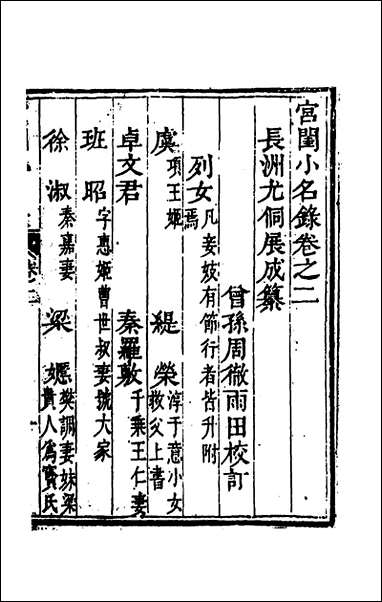 宮閨小名錄卷之二
長洲尤侗展成纂
曾孫周徹雨田校訂
列女凡妾妓有節行者皆升附焉
虞項王姬 緹縈淳于意小女救父上書
卓文君 秦羅敷千乘王仁妻
班昭字惠姬曹世叔妻號大家
徐淑秦嘉妻 梁嫕樊調妻妹梁貴人為竇氏
卷二